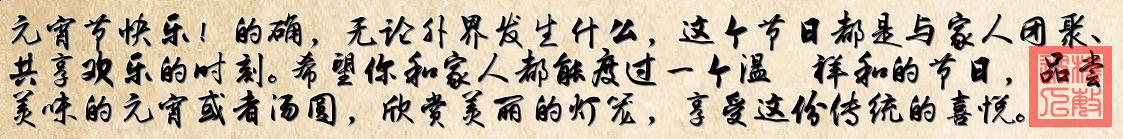 元宵节快乐！的确，无论外界发生什么，这个节日都是与家人团聚、
共享欢乐的时刻。希望你和家人都能度过一个温 祥和的节日，品尝
美味的元宵或者汤圆，欣赏美丽的灯笼，享受这份传统的喜悦。